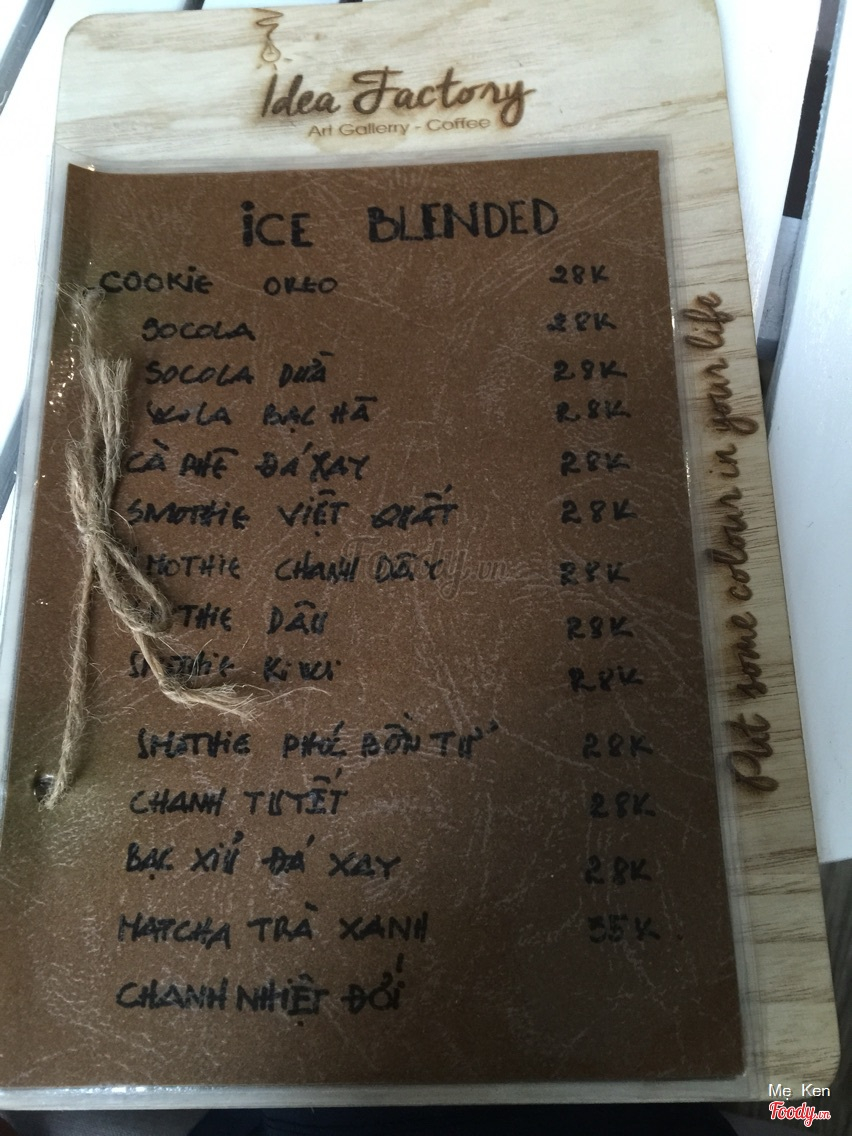 Idea Factory
Art Gallerry - Coffee
iCE BLENDED
COOKiE OREO 28K
SOCOLA 28K
SOCOLA DỪA 28K
SOCOLA BẠC HÀ 28K
CÀ PHÊ ĐÁ XAY 28K
SMOTHiE VIỆT QUẤT 28K
SMOTHiE CHANH DÂY 28K
SMOTHiE DÂU 28K
SMOTHiE KiWi 28K
SMOTHiE PHÚC BỒN TỬ 28K
CHANH TUYẾT 28K
BẠC XỈU ĐÁ XAY 28K
MATCHA TRÀ XANH 35K
CHANH NHIỆT ĐỚI
Put some colour in your life
Foody.vn
Mẹ Ken
Foody.vn